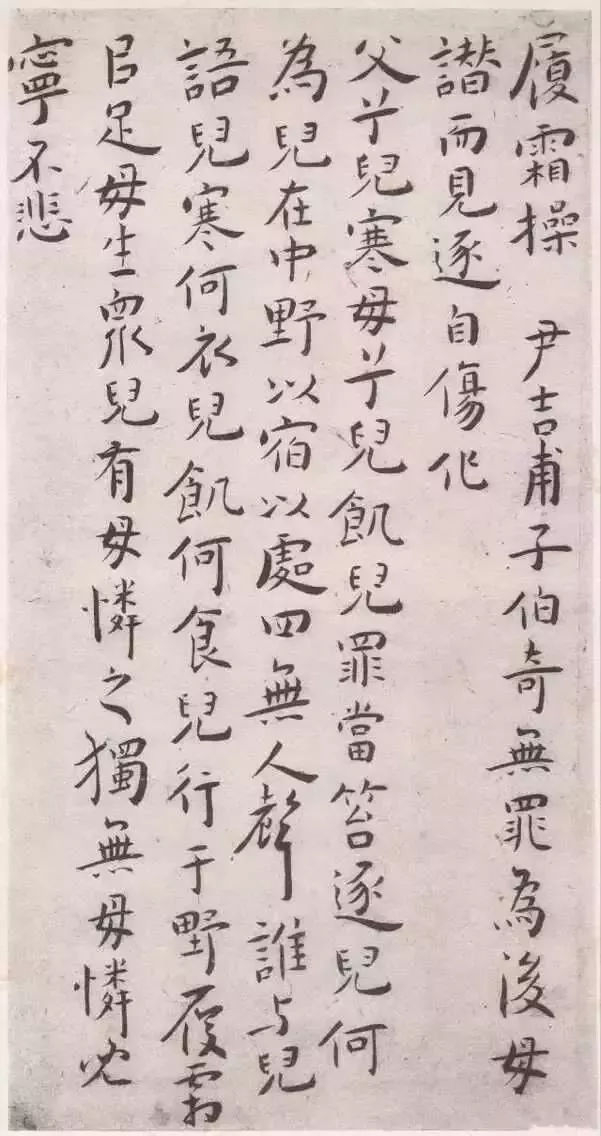 履霜操 尹吉甫子伯奇無罪為後母
譖而見逐自傷作
父兮兒寒母兮兒飢兒罪當笞逐兒何
為兒在中野以宿以處四無人聲誰与兒
語兒寒何衣兒飢何食兒行于野履霜
以足母生眾兒有母憐之獨無母憐兒
寧不悲